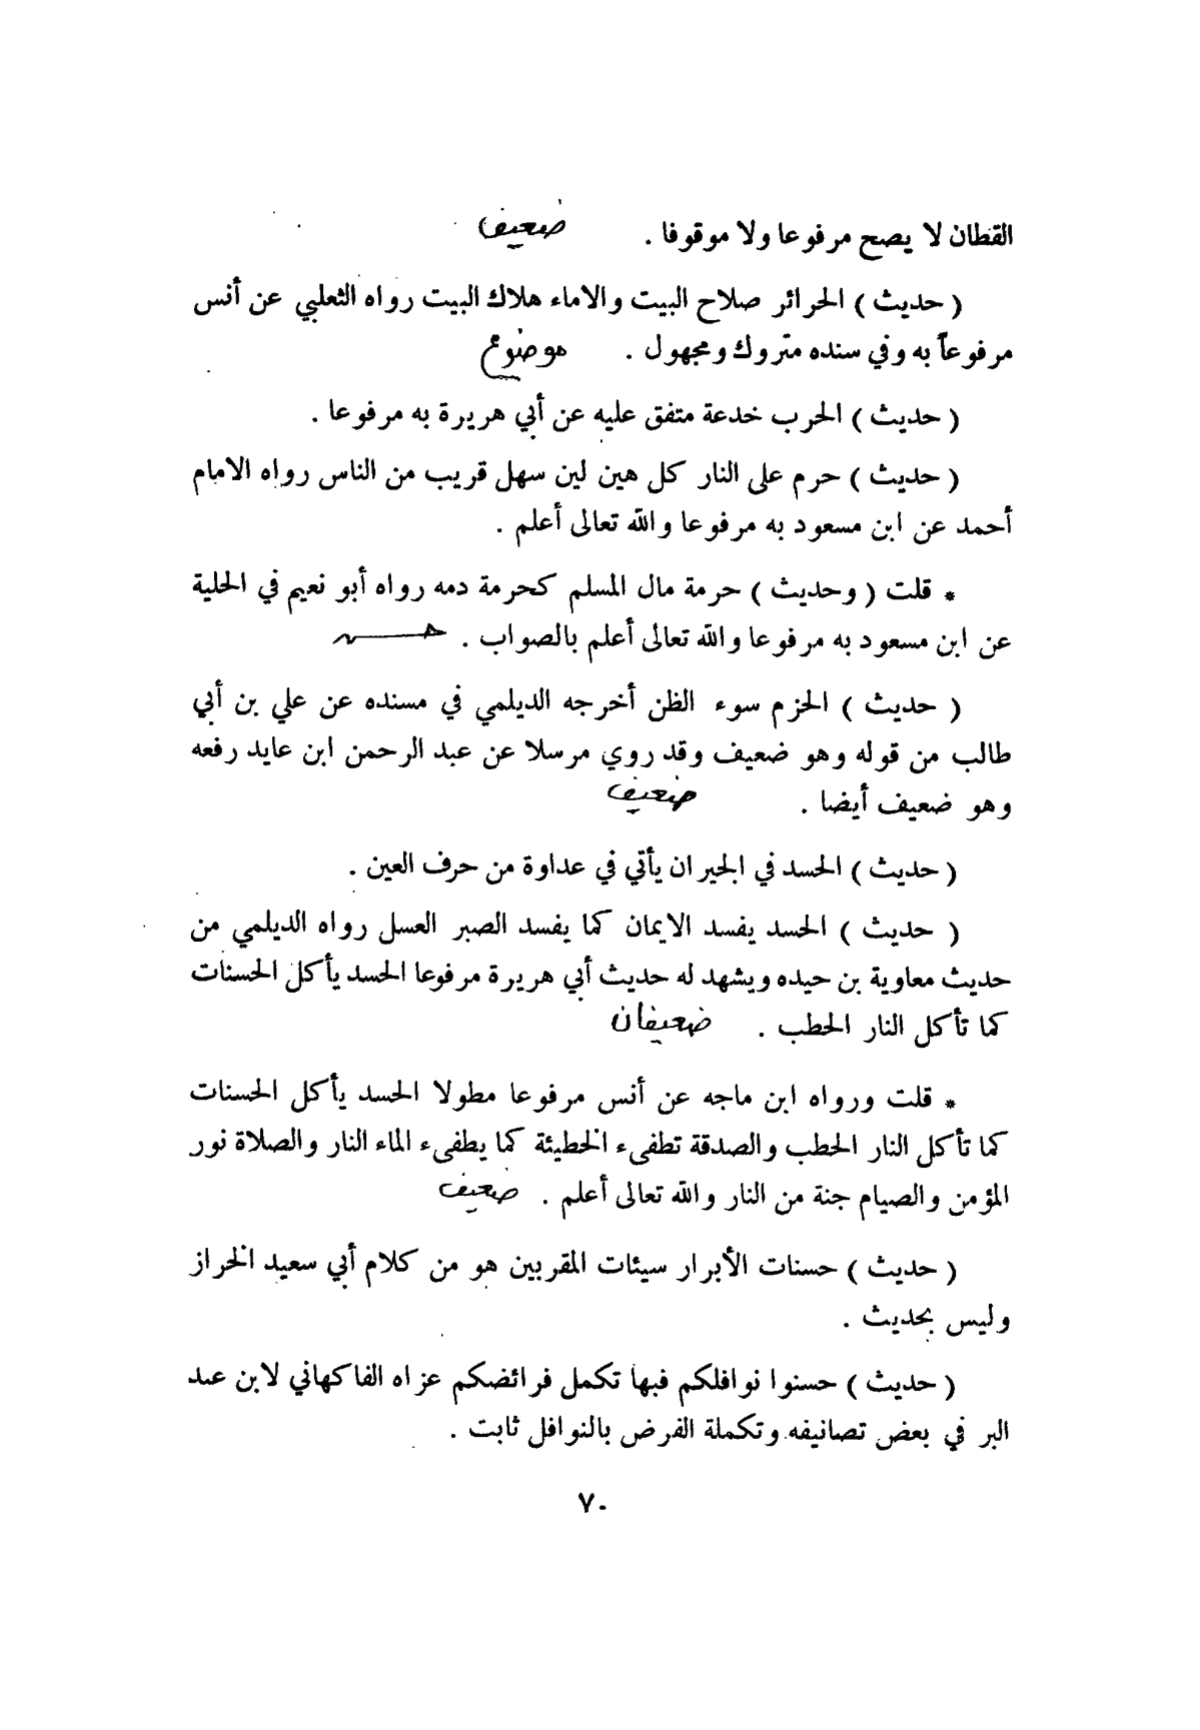 القطان لا يصح مرفوعا ولا موقوفا . ضعيف
( حديث ) الحرائر صلاح البيت والاماء هلاك البيت رواه الثعلبي عن أنس
مرفوعاً به وفي سنده متروك ومجهول . موضوع
( حديث ) الحرب خدعة متفق عليه عن أبي هريرة به مرفوعا .
( حديث ) حرم على النار كل هين لين سهل قريب من الناس رواه الامام
أحمد عن ابن مسعود به مرفوعا والله تعالى أعلم .
* قلت ( وحديث ) حرمة مال المسلم كحرمة دمه رواه أبو نعيم في الحلية
عن ابن مسعود به مرفوعا والله تعالى أعلم بالصواب . حسن
( حديث ) الحزم سوء الظن أخرجه الديلمي في مسنده عن علي بن أبي
طالب من قوله وهو ضعيف وقد روي مرسلا عن عبد الرحمن ابن عايد رفعه
وهو ضعيف أيضا . ضعيف
( حديث ) الحسد في الجيران يأتي في عداوة من حرف العين .
( حديث ) الحسد يفسد الايمان كما يفسد الصبر العسل رواه الديلمي من
حديث معاوية بن حيده ويشهد له حديث أبي هريرة مرفوعا الحسد يأكل الحسنات
كما تأكل النار الحطب . ضعيفان
* قلت ورواه ابن ماجه عن أنس مرفوعا مطولا الحسد يأكل الحسنات
كما تأكل النار الحطب والصدقة تطفىء الخطيئة كما يطفىء الماء النار والصلاة نور
المؤمن والصيام جنة من النار والله تعالى أعلم . ضعيف
( حديث ) حسنات الأبرار سيئات المقربين هو من كلام أبي سعيد الخراز
وليس بحديث .
( حديث ) حسنوا نوافلكم فبها تكمل فرائضكم عزاه الفاكهاني لابن عبد
البر في بعض تصانيفه وتكملة الفرض بالنوافل ثابت .
٧٠